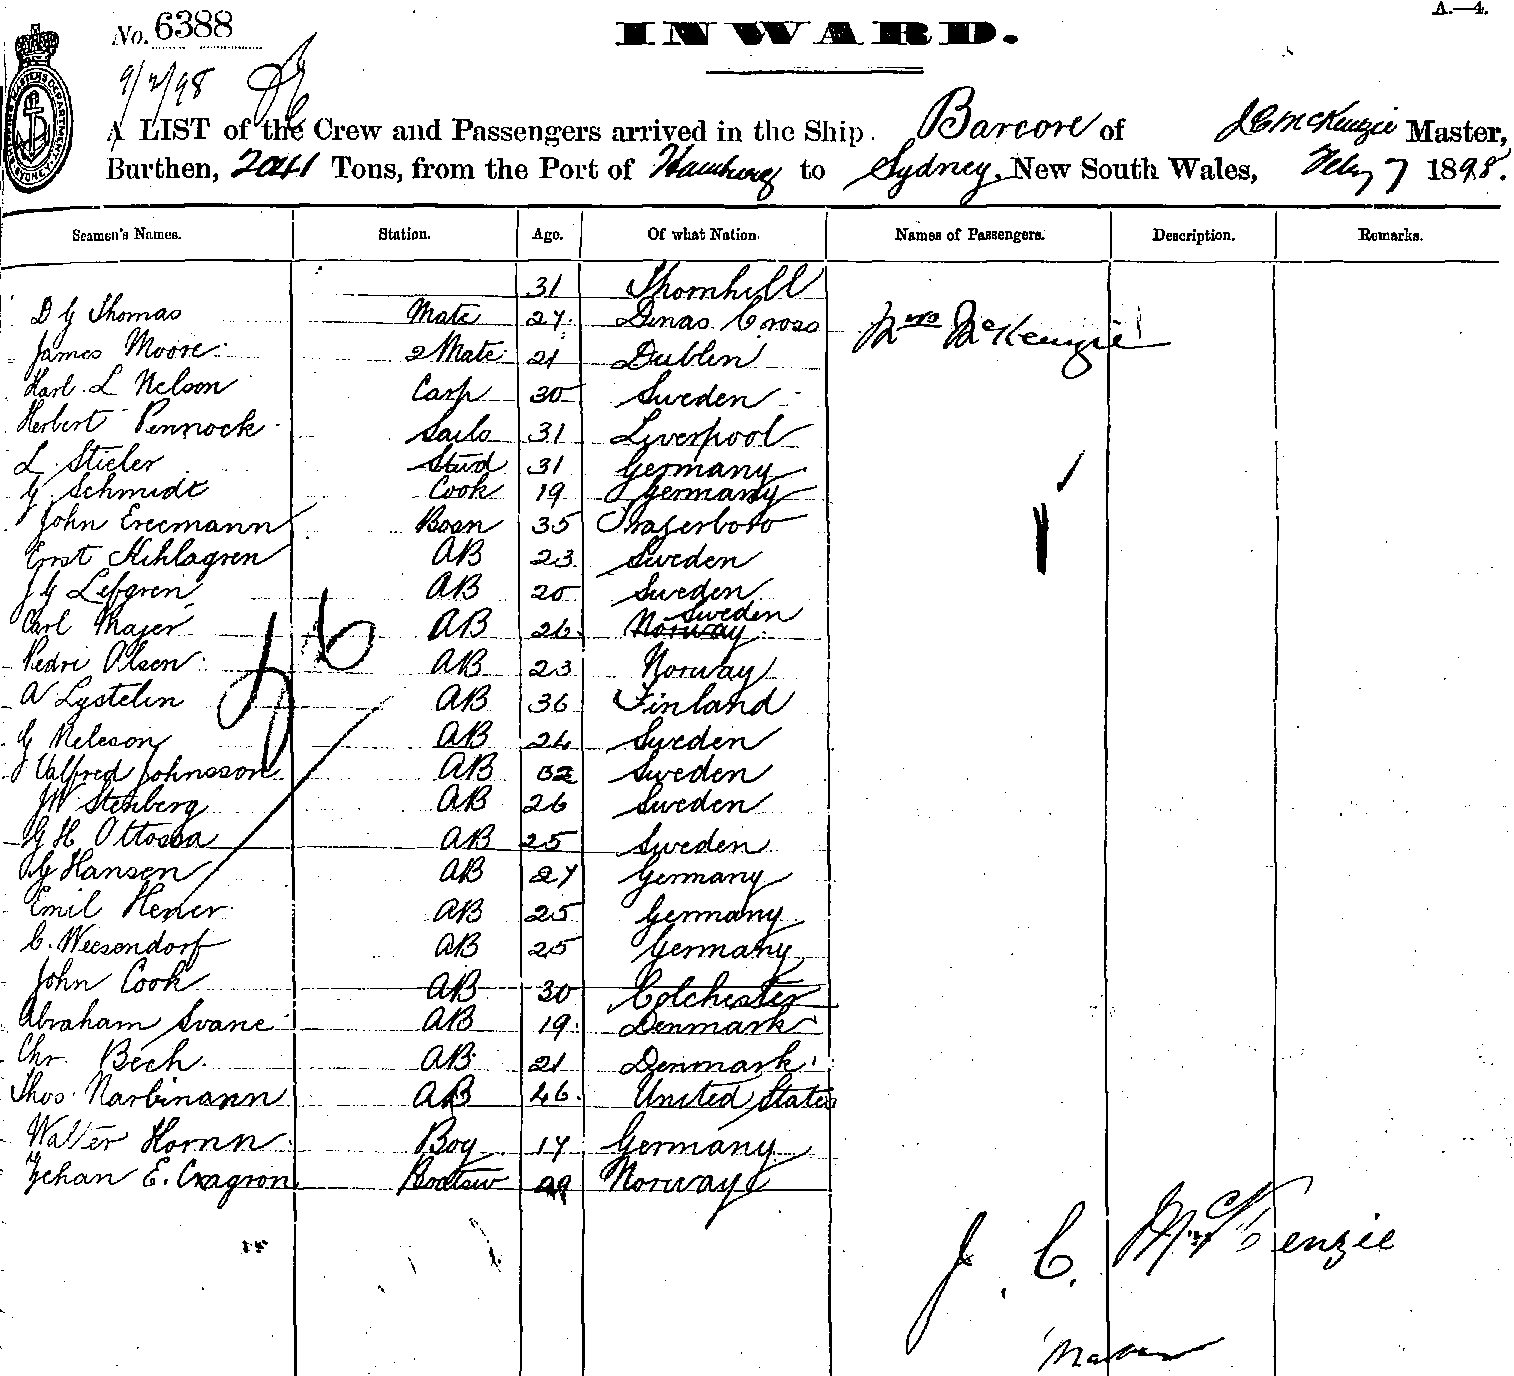 A.—4.
No. 6388
INWARD.
9/2/98
A LIST of the Crew and Passengers arrived in the Ship. Barcore of J C McKenzie Master,
Burthen, 2041 Tons, from the Port of Hamburg to Sydney, New South Wales, Feby 7 1898.
Seamen's Names. Station. Age. Of what Nation. Names of Passengers. Description. Remarks.
31 Thornhill
D G Thomas Mate 27 Dinas Cross Mrs McKenzie
James Moore 2 Mate 21 Dublin
Karl L Nelson Carp 30 Sweden
Herbert Pennock Sailo 31 Liverpool
L Stieler Stud 31 Germany
G Schmidt Cook 19 Germany
John Erecmann Bosn 35
Ernst Kihlagren AB 23 Sweden
J G Lefgren AB 20 Sweden
Carl Majer AB 26 Norway Sweden
Pedri Olsen AB 23 Norway
A Lystelin AB 36 Finland
G Neleson AB 26 Sweden
J Valfred Johnsson AB 32 Sweden
J W Stenberg AB 26 Sweden
G H Ottossa AB 25 Sweden
G Hansen AB 27 Germany
Emil Hener AB 25 Germany
C. Weesendorf AB 25 Germany
John Cook AB 30 Colchester
Abraham Svane AB 19 Denmark
Chr. Bech. AB 21 Denmark
Thos Narbinann AB 46 United States
Walter Hornn Boy 17 Germany
Jehan E. Cragron Boatsw Norway
J. C. McKenzie
Master